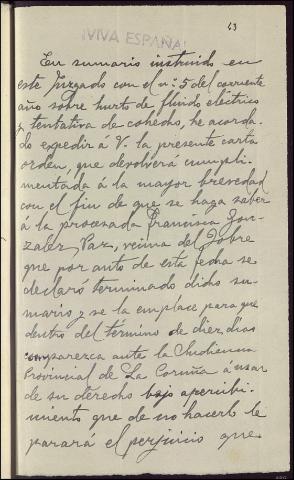 43
¡VIVA ESPAÑA!
En sumario instruido en
este Juzgado con el nº 5 del corriente
año sobre hurto de fluido eléctrico
y tentativa de cohecho, he acorda-
do expedir á V. la presente carta
orden, que devolverá cumpli-
mentada á la mayor brevedad
con el fin de que se haga saber
á la procesada Francisca Gon-
zalez Vaz, vecina del Pobre
que por auto de esta fecha se
declaró terminado dicho su-
mario y se la emplace para que
dentro del término de diez dias
comparezca ante la Audiencia
Provincial de La Coruña á usar
de su derecho bajo apercibi-
miento que de no hacerlo le
parará el perjuicio que